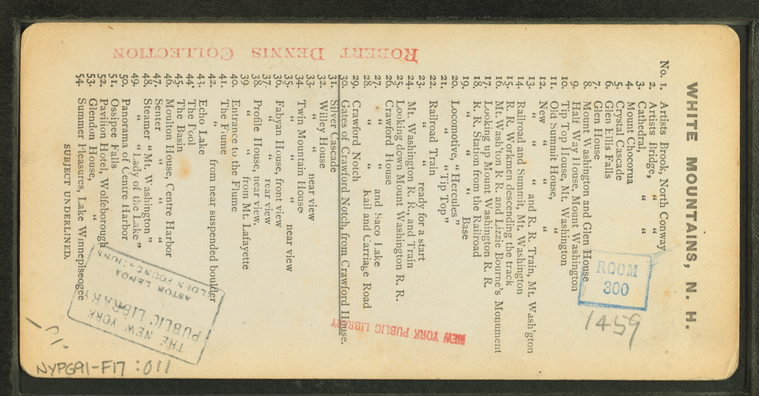 WHITE MOUNTAINS, N. H.
No. 1. Artists Brook, North Conway
2. Artists Bridge, " "
3. Cathedral, " "
4. Mount Chocorua
5. Crystal Cascade
6. Glen Ellis Falls
7. Glen House
8. Mount Washington and Glen House
9. Half Way House, Mount Washington
10. Tip Top House, Mt. Washington
11. Old Summit House, "
12. New " " "
13. " " " and R. R. Train, Mt. Wash'gton
14. Railroad and Summit, Mt. Washington
15. R. R. Workmen descending the track
16. Mt. Wash'ton R R. and Lizzie Bourne's Monument
17. Looking up Mount Washington R. R.
18. R. R. Station from the Railroad
19. " " " Base
20. Locomotive, "Hercules"
21. " "Tip Top"
22. Railroad Train
23. " " ready for a start
24. Mt. Washington R. R., and Train
25. Looking down Mount Washington R. R.
26. Crawford House
27. " " and Saco Lake
28. " " Rail and Carriage Road
29. Crawford Notch
30. Gates of Crawford Notch, from Crawford House.
31. Silver Cascade
32. Willey House
33. " " near view
34. Twin Mountain House
35. " " " near view
36. Fabyan House, front view
37. " " rear view
38. Profile House, near view.
39. " " from Mt. Lafayette
40. Entrance to the Flume
41. The Flume
42. " " from near suspended boulder
43. Echo Lake
44. The Pool
45. The Basin
46. Moulton House, Centre Harbor
47. Senter " " "
48. Steamer "Mt. Washington"
49. " "Lady of the Lake"
50. Panorama of Centre Harbor
51. Ossipee Falls
52. Pavilion Hotel, Wolfeborough
53. Glendon House, "
54. Summer Pleasures, Lake Winnepiseogee
SUBJECT UNDERLINED.
ROBERT DENNIS COLLECTION
ROOM
300
1459
NEW YORK PUBLIC LIBRARY
THE NEW YORK
PUBLIC LIBRARY
ASTOR LENOX
TILDEN FOUNDATIONS
NYPG91-F17 : 011